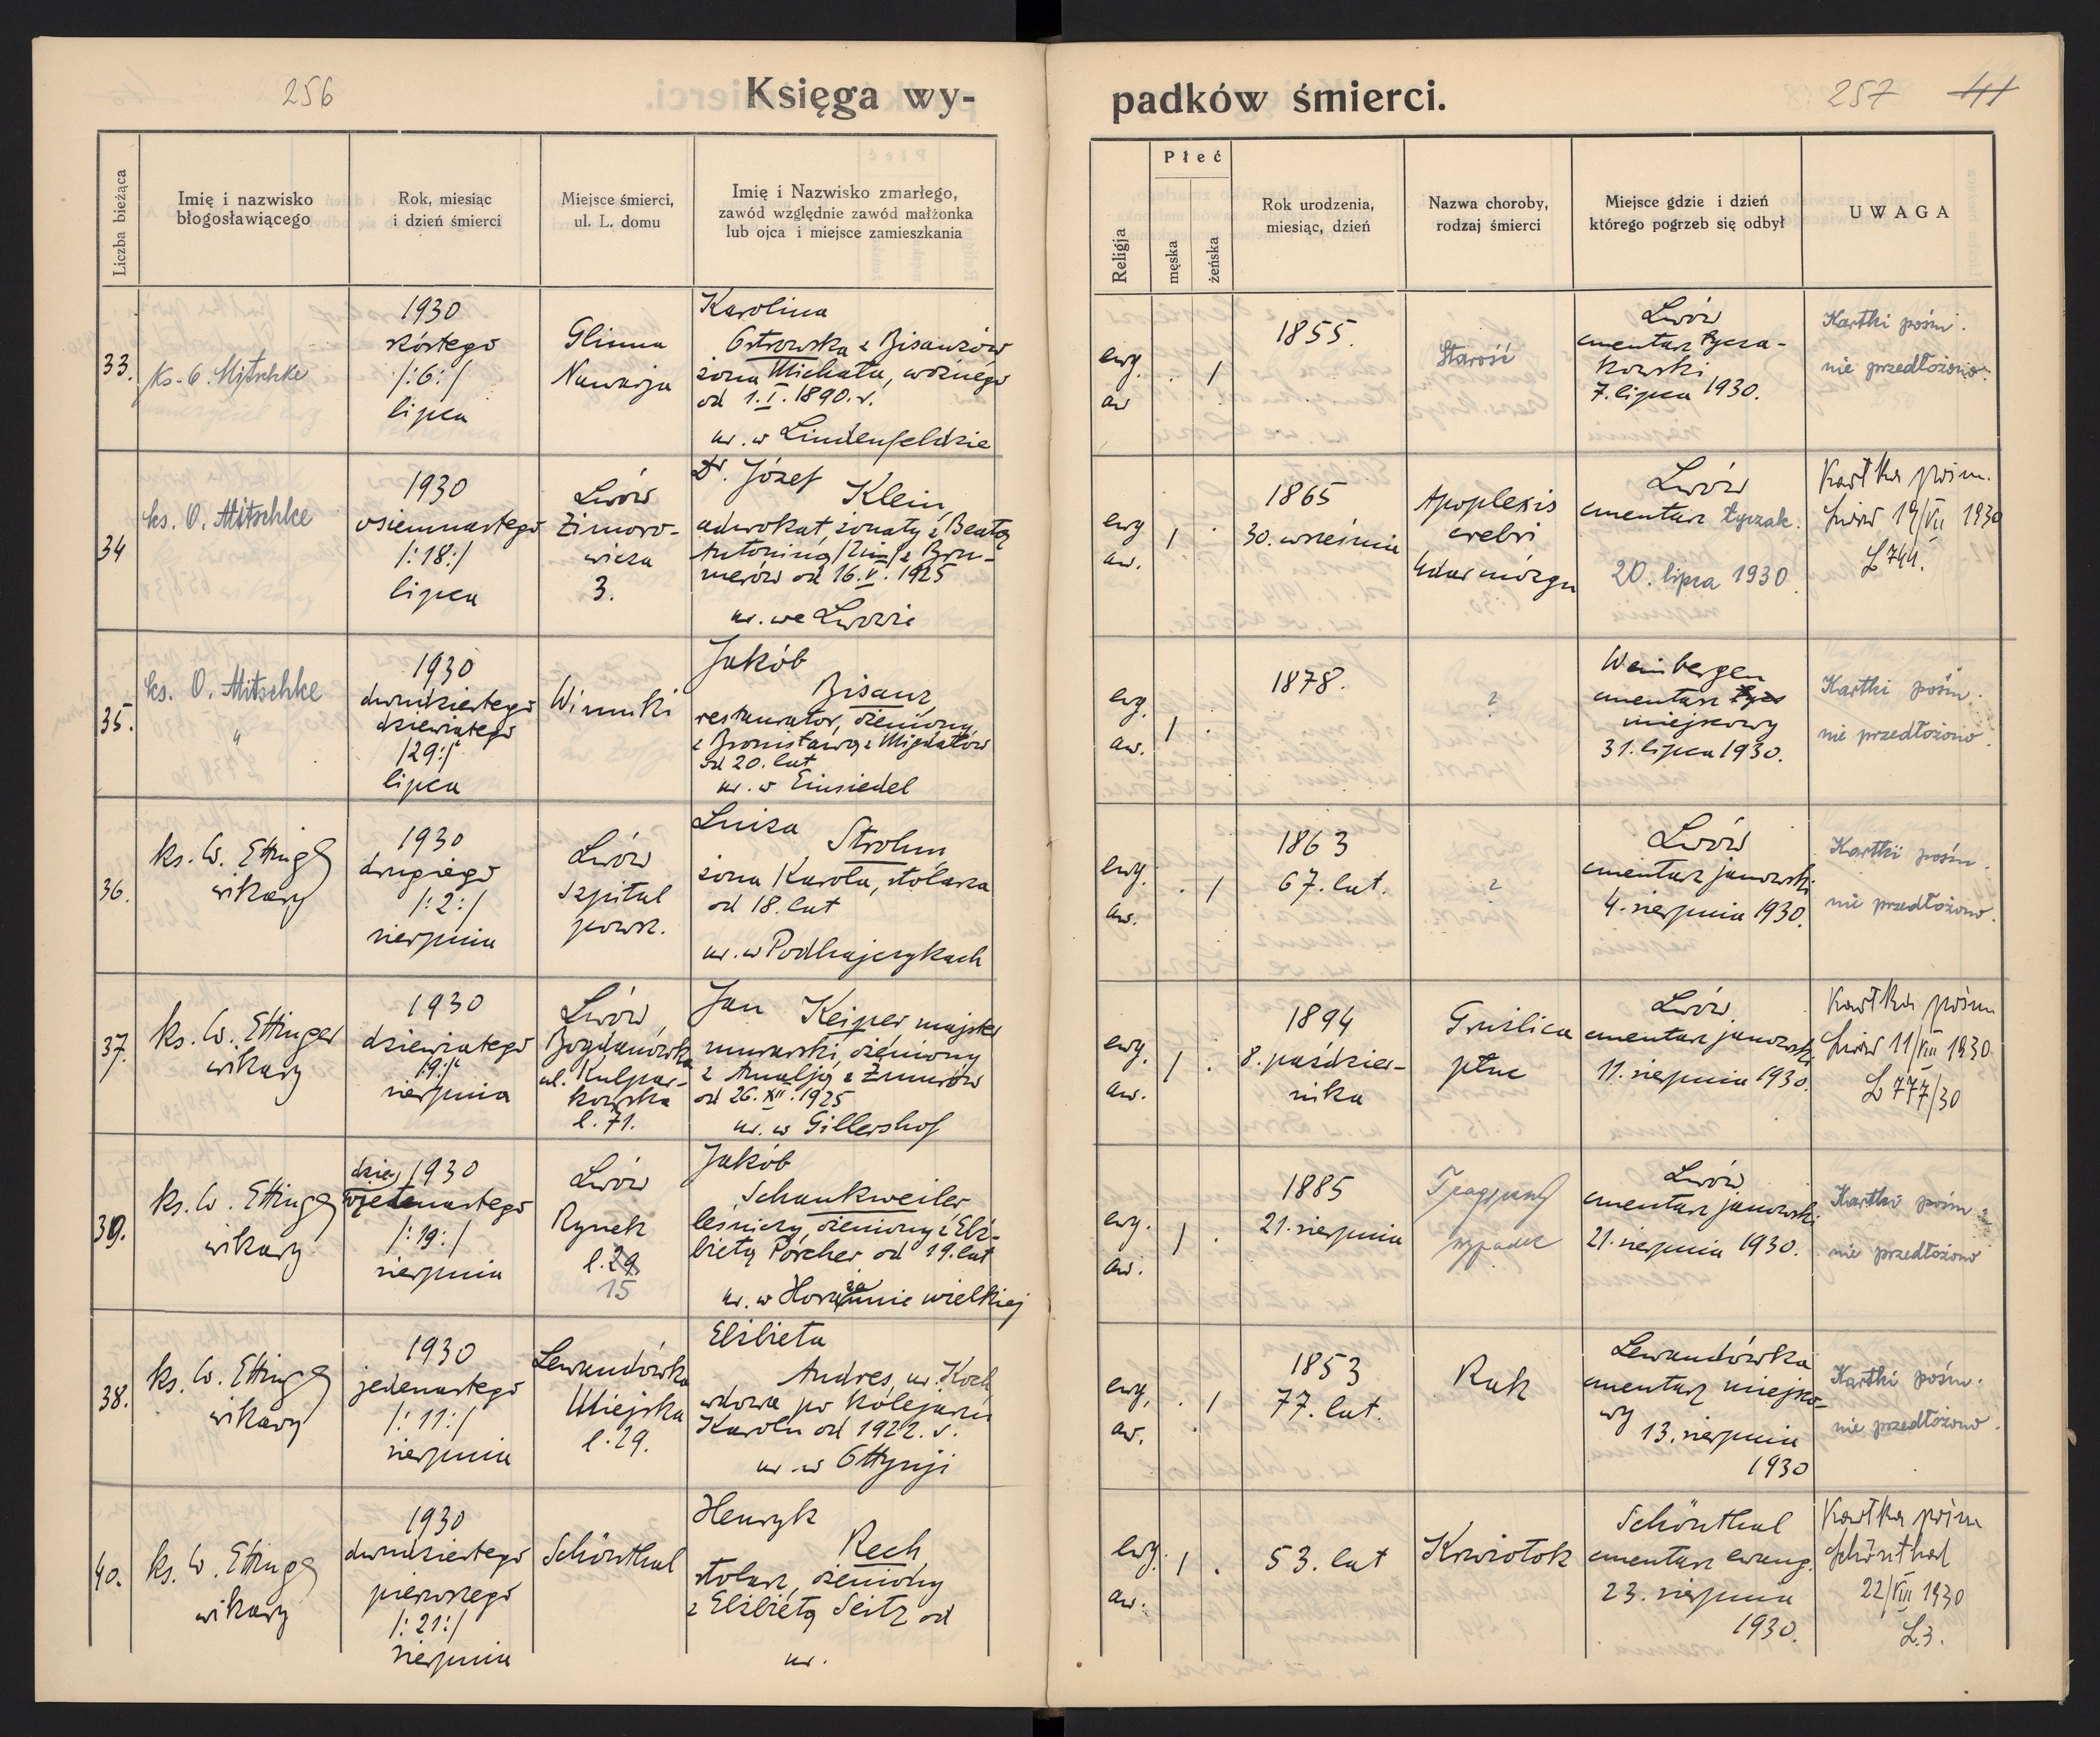 256
Księga wy-
padków śmierci.
257
41
Liczba bieżąca
Imię i nazwisko
błogosławiącego
Rok, miesiąc
i dzień śmierci
Miejsce śmierci,
ul. L. domu
Imię i Nazwisko zmarłego,
zawód względnie zawód małżonka
lub ojca i miejsce zamieszkania
Religja
Płeć
męska
żeńska
Rok urodzenia,
miesiąc, dzień
Nazwa choroby,
rodzaj śmierci
Miejsce gdzie i dzień
którego pogrzeb się odbył
UWAGA
33.
ks. O. Mitschke
1930
szóstego
/:6:/
lipca
Glinna
Nawarja
Karolina
Ostrowska z Bisanzów
żona Michała, woźnego
od 1.I.1890.r.
ur. w Lindenfeldzie
ewg.
aw
. /
1855.
Starość
Lwów
cmentarz Łycza-
kowski
7. lipca 1930.
Kartki pośm.
nie przedłożono.
34
ks. O. Mitschke
1930
osiemnastego
/:18:/
lipca
Lwów
Zimoro-
wicza
3.
Dr. Józef
Klein,
adwokat, żonaty z Beatą
Antoniną /2im/ z Bru-
nerów od 16.V.1925
ur. we Lwowie
ewg
aw.
/ .
1865
30. września
Apoplexis
crebri
Udar mózgu
Lwów
cmentarz Łyczak.
20. lipca 1930.
Kartka pośm.
Lwów 19/VII 1930
L 744.
35.
ks. O. Mitschke
"
1930
dwudziestego
dziewiątego
/29:/
lipca
Winniki
Jakób
Bisanz,
restaurator, ożeniony
z Bronisławą z Migdałów
od 20. lat
ur. w Einsiedel
ewg.
aw.
/ .
1878.
?
Weinbergen
cmentarz
miejscowy
31. lipca 1930.
Kartki pośm.
nie przedłożono.
36.
ks. W. Ettinger
wikary
1930
drugiego
/:2:/
sierpnia
Lwów
szpital
powsz.
Luiza
Strohm,
żona Karola, stolarza
od 18. lat
ur. w Podhajczykach
ewg.
aw.
. /
1863
67. lat.
?
Lwów
cmentarz janowski
4. sierpnia 1930.
Kartki pośm.
nie przedłożono.
37.
ks. W. Ettinger
wikary
1930
dziewiątego
/:9:/
sierpnia
Lwów,
Bogdanówka
ul. Kulpar-
kowska
l. 71.
Jan Keiper, majster
murarski, ożeniony
z Amalją z Żmurów
od 26.XII.1925
ur. w Gillershof
ewg.
aw.
/ .
1894
8. paździer-
nika
Gruźlica
płuc
Lwów,
cmentarz janowski,
11. sierpnia 1930.
Kartka pośm
Lwów 11/VIII 1930
L 777/30
39.
ks. W. Ettinger
wikary
dzie 1930
więtnastego
/:19:/
sierpnia
Lwów
Rynek
l. 29.
15
Jakób
Schankweiler
leśniczy, ożeniony z Elż-
bietą Porcher od 19. lat
ur. w Horożannie wielkiej
ewg.
aw.
/ .
1885
21. sierpnia
Tragiczny
wypadek
Lwów
cmentarz janowski
21. sierpnia 1930.
Kartki pośm.
nie przedłożono
38.
ks. W. Ettinger
wikary
1930
jedenastego
/:11:/
sierpnia
Lewandówka
Miejska
l. 29.
Elżbieta
Andres, ur. Koch
wdowa po kolejarzu
Karolu od 1922. r.
ur. w Ottynji
ewg.
aw.
. /
1853
77. lat.
Rak
Lewandówka
cmentarz miejsco-
wy
13. sierpnia
1930
Kartki pośm.
nie przedłożono.
40.
ks. W. Ettinger
wikary
1930
dwudziestego
pierwszego
/:21:/
sierpnia
Schönthal
Henryk
Rech,
stolarz, ożeniony
z Elżbietą Seitz od
ur.
ewg.
aw.
/ .
53. lat
Krwiotok
Schönthal
cmentarz ewang.
23. sierpnia
1930.
Kartka pośm
Schönthal
22/VIII 1930
L.3.